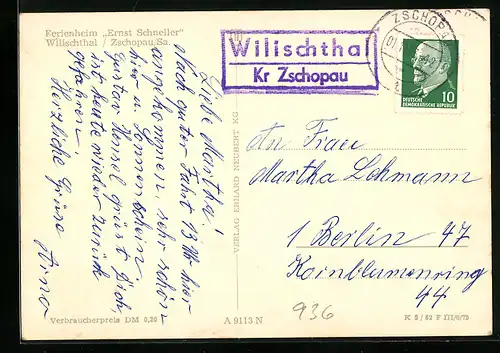 Ferienheim „Ernst Schneller"
Wilischthal / Zschopau, Sa.
Wilischthal
Kr Zschopau
ZSCHOPAU
DEUTSCHE
DEMOKRATISCHE REPUBLIK
10
Liebe Martha!
Nach guter Fahrt 13 Uhr hier
angekommen, sehr schön
hier u. Sonnenschein.
Gustav Hensel grüst Dich,
ist heute wieder zurück
gefahren
Herzliche Grüse
Anna
VERLAG ERHARD NEUBERT KG
An Frau
Martha Lehmann
1 Berlin 47
Kornblumenring
44
936
Verbraucherpreis DM 0,20
A 9113 N
K 5 / 62 F III/6/75